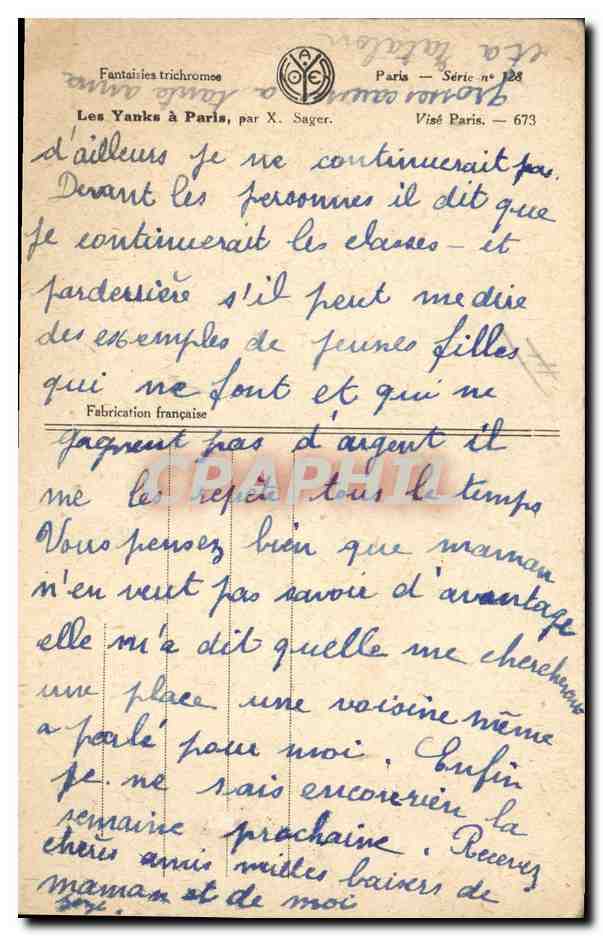 et a Natalon
grosses caresses a tante anna
Fantaisies trichromes
Paris — Série n° 128
Les Yanks à Paris, par X. Sager.
Visé Paris. — 673
d'ailleurs je ne continuerait pas.
Devant les personnes il dit que
je continuerait les classes — et
parderrière s'il peut me dire
des exemples de jeunes filles
qui ne font et qui ne
Fabrication française
gagnent pas d'argent il
me les repète tous le temps
Vous pensez bien que maman
n'en veut pas savoir d'avantage
elle m'a dit quelle me chercherait
une place une voisine même
a parlé pour moi. Enfin
je ne sais encorerien la
semaine prochaine. Recevez
chères amis milles baisers de
maman et de moi
CPAPHIL